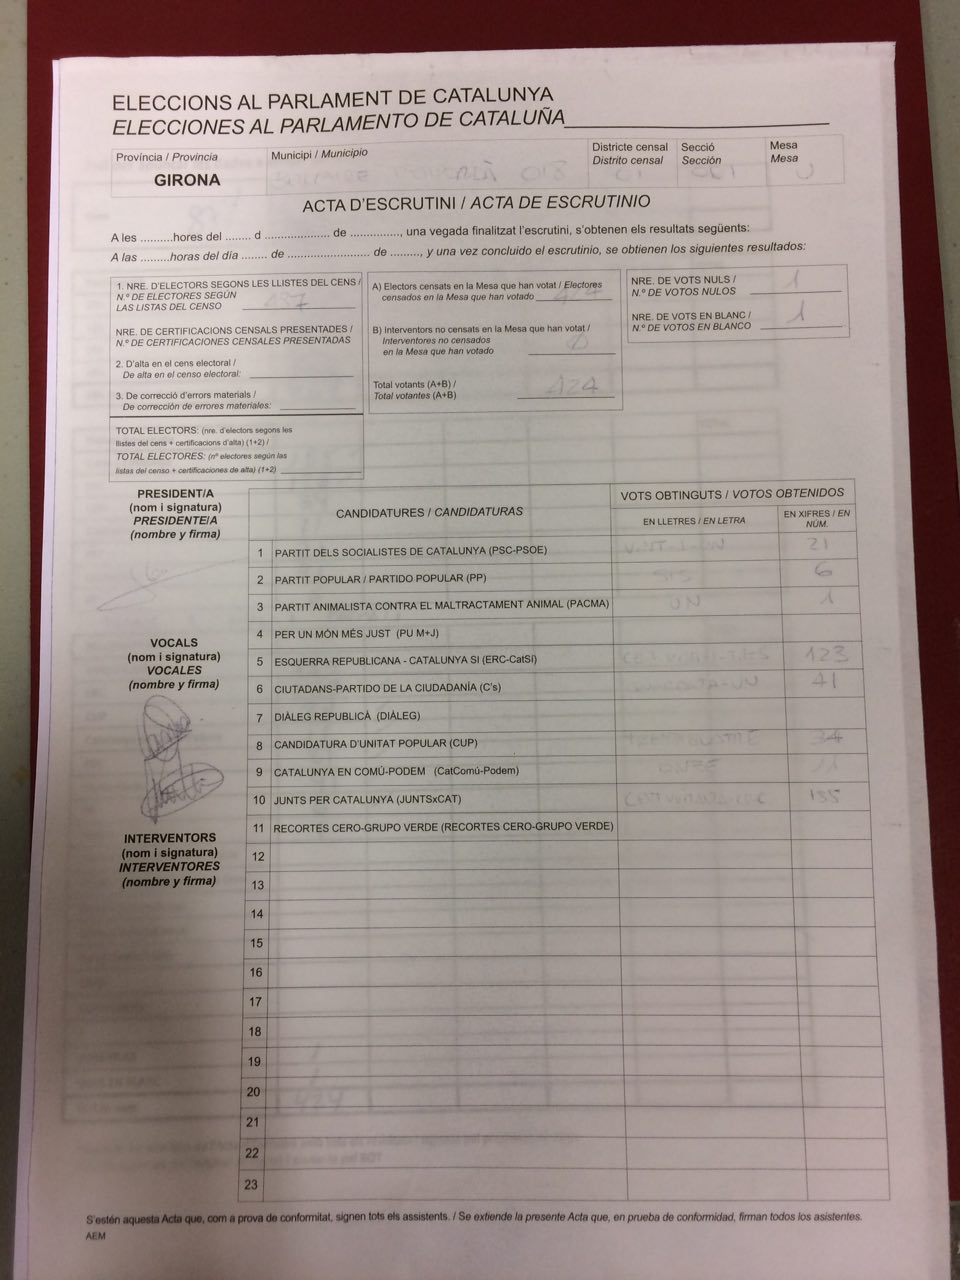 ELECCIONS AL PARLAMENT DE CATALUNYA
ELECCIONES AL PARLAMENTO DE CATALUÑA
Província / Provincia
GIRONA
Municipi / Municipio
018
Districte censal
Distrito censal
01
Secció
Sección
001
Mesa
Mesa
U
ACTA D'ESCRUTINI / ACTA DE ESCRUTINIO
A les ..........hores del ........ d ..................... de ................, una vegada finalitzat l'escrutini, s'obtenen els resultats següents:
A las .........horas del día ........ de ........................... de ........., y una vez concluido el escrutinio, se obtienen los siguientes resultados:
1. NRE. D'ELECTORS SEGONS LES LLISTES DEL CENS /
N.º DE ELECTORES SEGÚN
LAS LISTAS DEL CENSO
NRE. DE CERTIFICACIONS CENSALS PRESENTADES /
N.º DE CERTIFICACIONES CENSALES PRESENTADAS
2. D'alta en el cens electoral /
De alta en el censo electoral:
3. De correcció d'errors materials /
De corrección de errores materiales:
TOTAL ELECTORS: (nre. d'electors segons les
llistes del cens + certificacions d'alta) (1+2) /
TOTAL ELECTORES: (nº electores según las
listas del censo + certificaciones de alta) (1+2)
A) Electors censats en la Mesa que han votat / Electores
censados en la Mesa que han votado 424
B) Interventors no censats en la Mesa que han votat /
Interventores no censados
en la Mesa que han votado 0
Total votants (A+B) /
Total votantes (A+B) 424
NRE. DE VOTS NULS /
N.º DE VOTOS NULOS 1
NRE. DE VOTS EN BLANC /
N.º DE VOTOS EN BLANCO 1
PRESIDENT/A
(nom i signatura)
PRESIDENTE/A
(nombre y firma)
VOCALS
(nom i signatura)
VOCALES
(nombre y firma)
INTERVENTORS
(nom i signatura)
INTERVENTORES
(nombre y firma)
CANDIDATURES / CANDIDATURAS
VOTS OBTINGUTS / VOTOS OBTENIDOS
EN LLETRES / EN LETRA
EN XIFRES / EN NÚM.
1 PARTIT DELS SOCIALISTES DE CATALUNYA (PSC-PSOE) VINT-I-UN 21
2 PARTIT POPULAR / PARTIDO POPULAR (PP) SIS 6
3 PARTIT ANIMALISTA CONTRA EL MALTRACTAMENT ANIMAL (PACMA) UN 1
4 PER UN MÓN MÉS JUST (PU M+J)
5 ESQUERRA REPUBLICANA - CATALUNYA SI (ERC-CatSí) 123
6 CIUTADANS-PARTIDO DE LA CIUDADANÍA (C's) 41
7 DIÀLEG REPUBLICÀ (DIÀLEG)
8 CANDIDATURA D'UNITAT POPULAR (CUP) 34
9 CATALUNYA EN COMÚ-PODEM (CatComú-Podem) ONZE 11
10 JUNTS PER CATALUNYA (JUNTSxCAT) 185
11 RECORTES CERO-GRUPO VERDE (RECORTES CERO-GRUPO VERDE)
12
13
14
15
16
17
18
19
20
21
22
23
S'estén aquesta Acta que, com a prova de conformitat, signen tots els assistents. / Se extiende la presente Acta que, en prueba de conformidad, firman todos los asistentes.
AEM